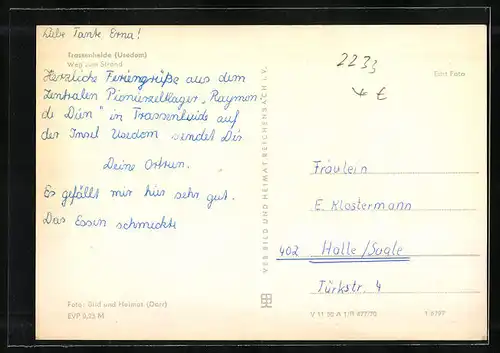 Liebe Tante Erna!
Trassenheide (Usedom)
Weg zum Strand
Herzliche Feriengrüße aus dem
Zentralen Pionierzeltlager „Raymon
de Dien" in Trassenheide auf
der Insel Usedom sendet Dir
Deine Ortrun.
Es gefällt mir hier sehr gut.
Das Essen schmeckte
Foto: Bild und Heimat (Darr)
EVP 0,23 M
VEB BILD UND HEIMAT REICHENBACH i. V.
2233
Echt Foto
Fräulein
E. Klostermann
402 Halle/Saale
Türkstr. 4
V 11 20 A 1/B 477/70